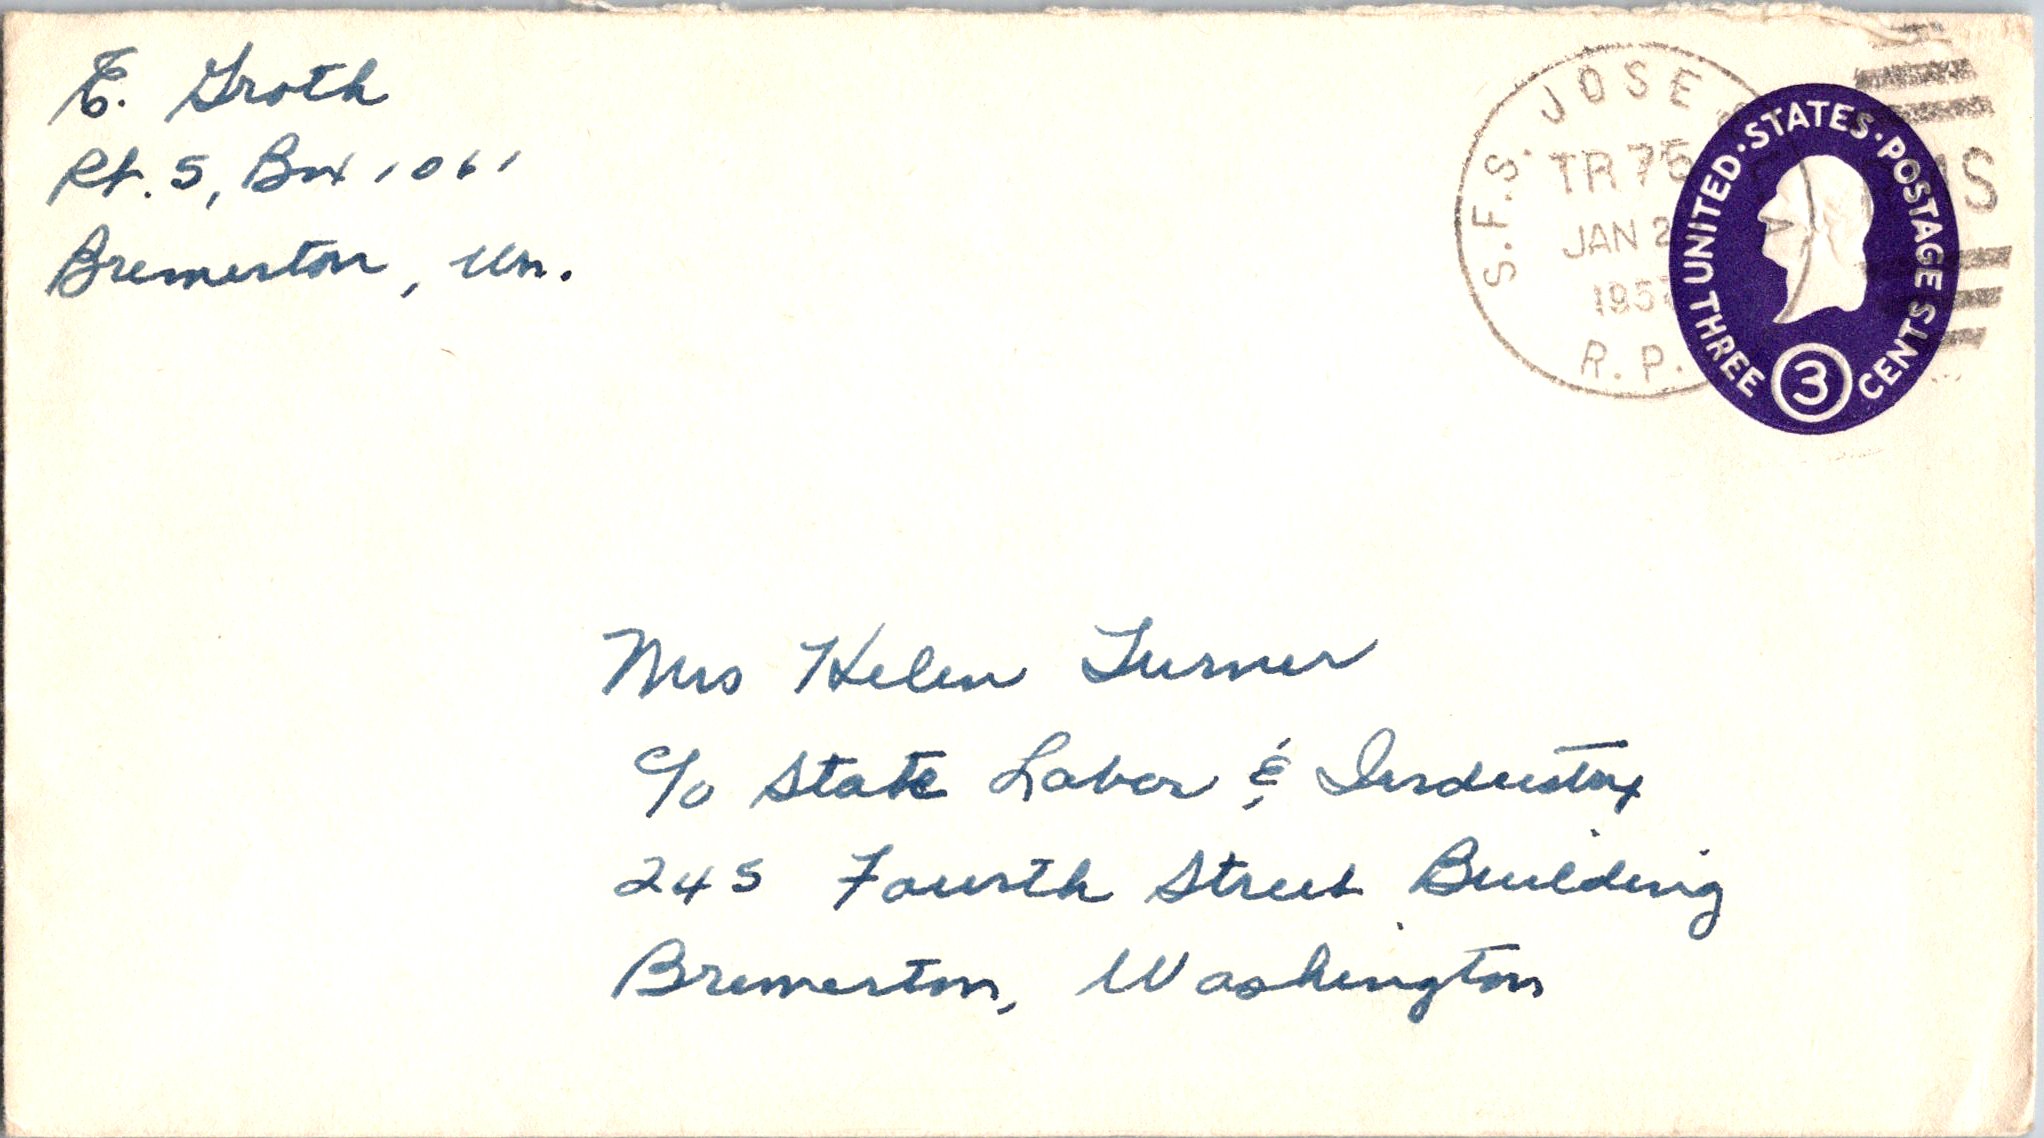 E. Groth
Rt. 5, Box 1061
Bremerton, Wn.
S.F.S. JOSE
TR 75
JAN 2
1957
R.P.
S
UNITED · STATES · POSTAGE
THREE 3 CENTS
Mrs Helen Turner
c/o State Labor & Industry
245 Fourth Street Building
Bremerton, Washington